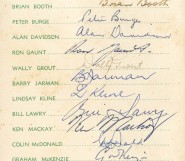 BRIAN BOOTH Brian Booth
PETER BURGE Peter Burge
ALAN DAVIDSON Alan Davidson
RON GAUNT Ron Gaunt
WALLY GROUT
BARRY JARMAN B Jarman
LINDSAY KLINE L Kline
BILL LAWRY Bill Lawry
KEN MACKAY Ken Mackay
COLIN McDONALD
GRAHAM McKENZIE